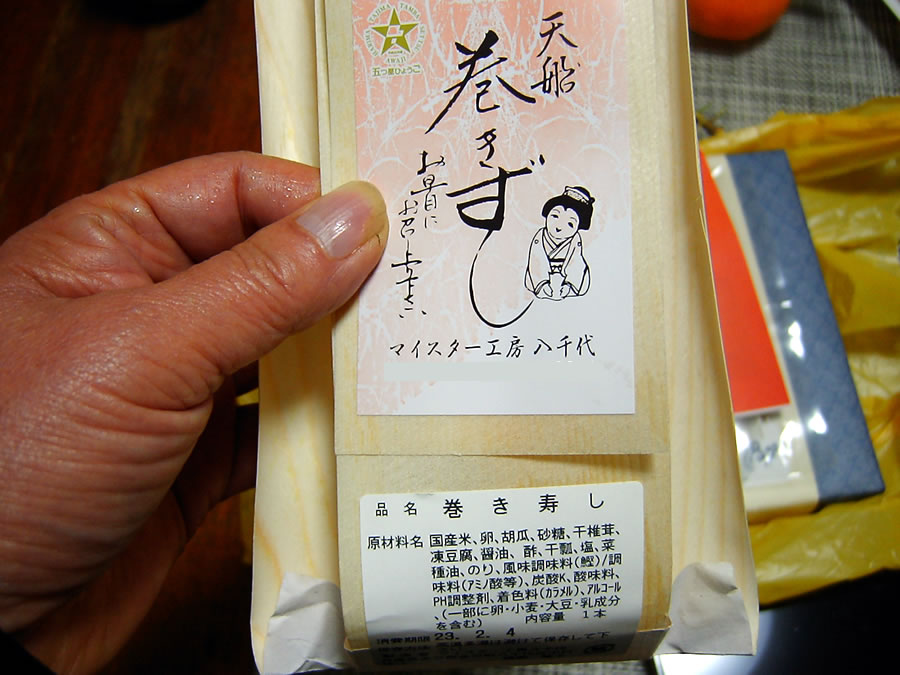 TAJIMA TAMBA
五つ星ひょうご
天船
巻きずし
お昼に
お召し上がり下さい
マイスター工房 八千代
品名 巻き寿し
原材料名 国産米、卵、胡瓜、砂糖、干椎茸、
凍豆腐、醤油、酢、干瓢、塩、菜
種油、のり、風味調味料(鰹)/調
味料(アミノ酸等)、炭酸K、酸味料、
PH調整剤、着色料(カラメル)、アルコール
、(一部に卵・小麦・大豆・乳成分
を含む) 内容量 1本
消費期限 23. 2. 4